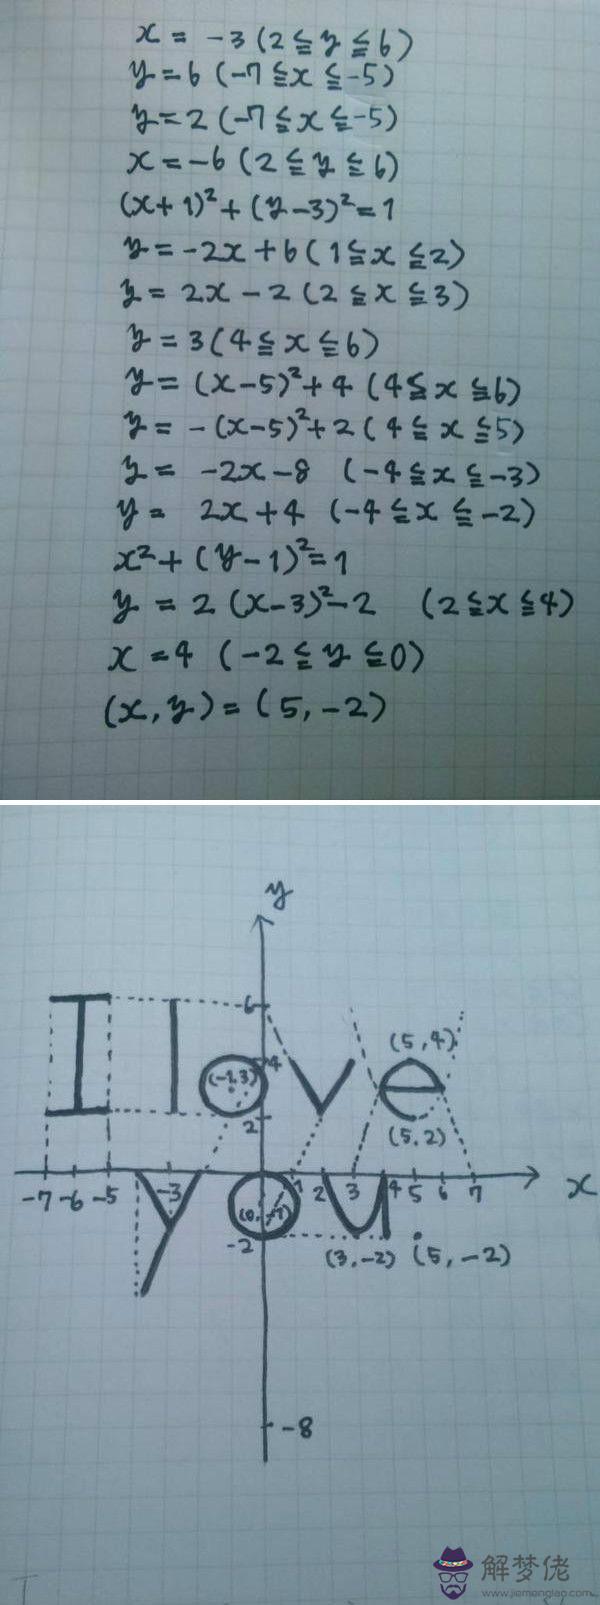 x = -3 (2 ≦ y ≦ 6)
y = 6 (-7 ≦ x ≦ -5)
y = 2 (-7 ≦ x ≦ -5)
x = -6 (2 ≦ y ≦ 6)
(x+1)² + (y-3)² = 1
y = -2x + 6 (1 ≦ x ≦ 2)
y = 2x - 2 (2 ≦ x ≦ 3)
y = 3 (4 ≦ x ≦ 6)
y = (x-5)² + 4 (4 ≦ x ≦ 6)
y = -(x-5)² + 2 (4 ≦ x ≦ 5)
y = -2x - 8 (-4 ≦ x ≦ -3)
y = 2x + 4 (-4 ≦ x ≦ -2)
x² + (y-1)² = 1
y = 2 (x-3)² - 2 (2 ≦ x ≦ 4)
x = 4 (-2 ≦ y ≦ 0)
(x, y) = (5, -2)
y
6
I love
4 (5, 4)
(-1, 3)
2 (5, 2)
-7 -6 -5 -3 1 2 3 4 5 6 7 x
you
(0, -1)
-2 (3, -2) (5, -2)
-8
解梦佬
www.jiemenglao.com